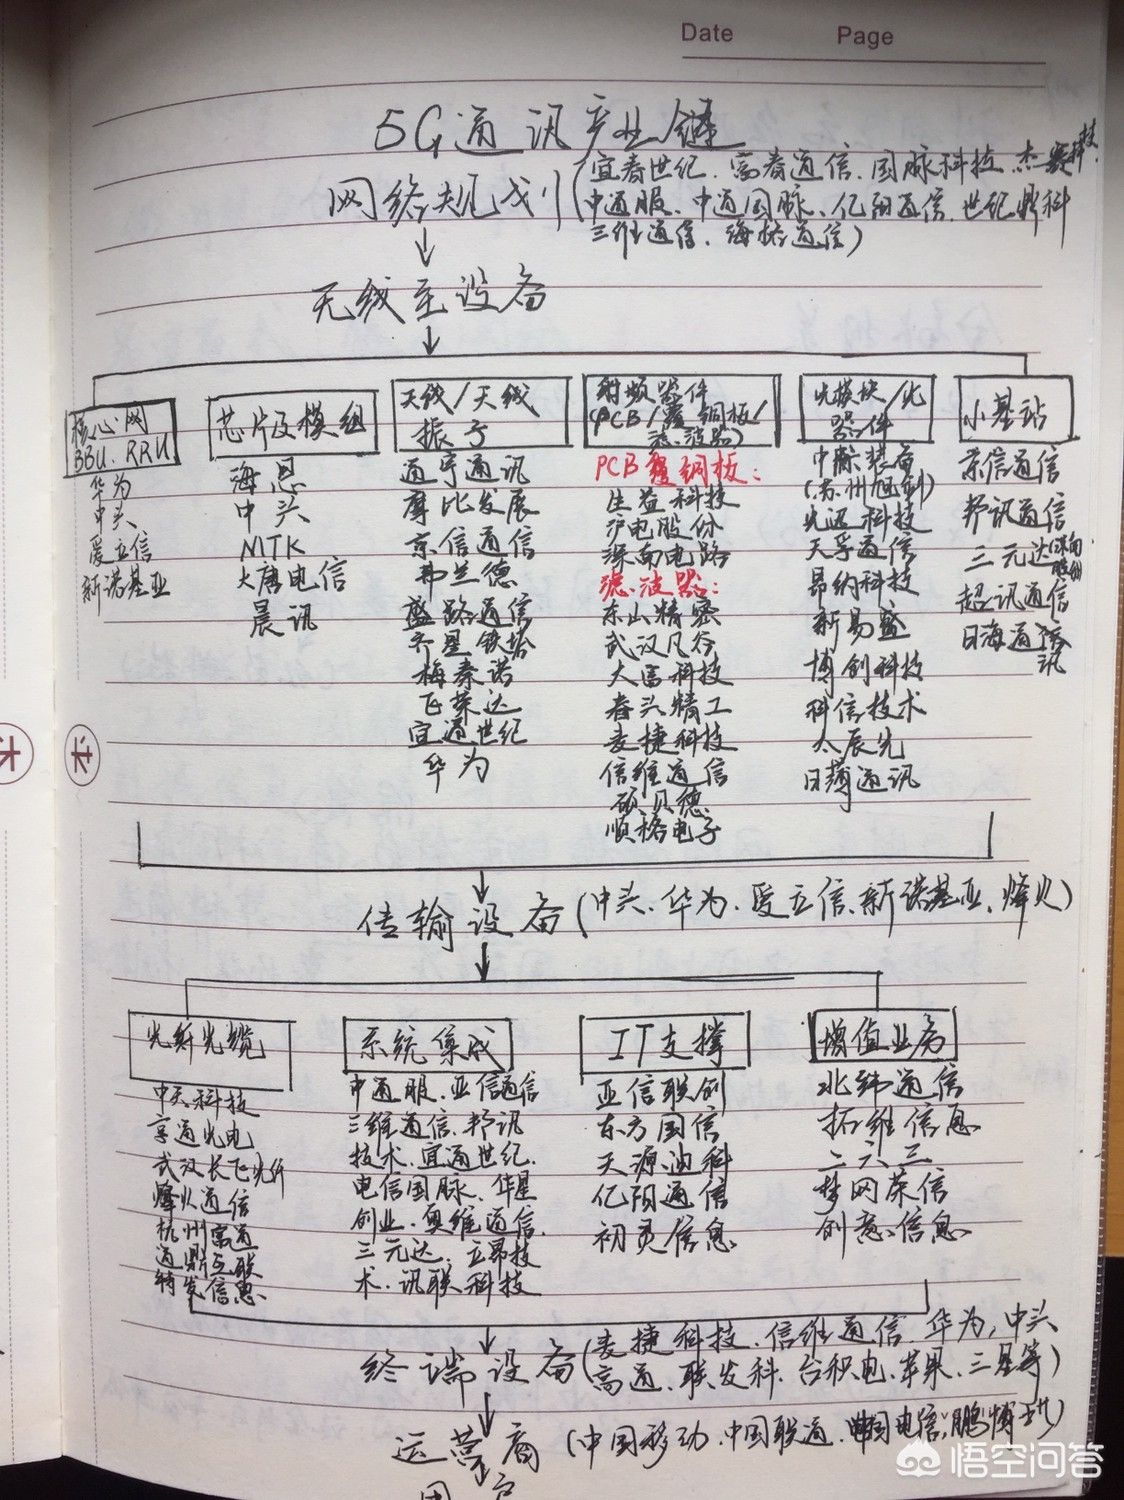 Date Page
5G通讯产业链
网络规划(宜春世纪、富春通信、国脉科技、杰赛科技、
中通服、中通国脉、亿阳通信、世纪鼎科
三维通信、海格通信)
无线主设备
核心网
BBU、RRU
华为
中兴
爱立信
新诺基亚
芯片及模组
海思
中兴
MTK
大唐电信
晨讯
天线/天线
振子
通宇通讯
摩比发展
京信通信
弗兰德
盛路通信
齐星铁塔
梅泰诺
飞荣达
宜通世纪
华为
射频器件
(PCB/覆铜板/
滤波器)
PCB覆铜板:
生益科技
沪电股份
深南电路
滤波器:
东山精密
武汉凡谷
大富科技
春兴精工
麦捷科技
信维通信
硕贝德
顺络电子
光模块/光
器件
中际装备
(苏州旭创)
光迅科技
天孚通信
昂纳科技
新易盛
博创科技
科信技术
太辰光
日海通讯
小基站
京信通信
邦讯通信
三元达
超讯通信
日海通讯
传输设备(中兴、华为、爱立信、新诺基亚、烽火)
光纤光缆
中天科技
亨通光电
武汉长飞光纤
烽火通信
杭州富通
通鼎互联
特发信息
系统集成
中通服、亚信通信
三维通信、邦讯
技术、宜通世纪、
电信国脉、华星
创业、奥维通信、
三元达、立昂技
术、讯联科技
IT支撑
亚信联创
东方国信
天源迪科
亿阳通信
初灵信息
增值业务
北纬通信
拓维信息
二六三
梦网荣信
创意信息
终端设备(麦捷科技、信维通信、华为、中兴
高通、联发科、台积电、苹果、三星等)
运营商(中国移动、中国联通、中国电信、鹏博士)
用户
悟空问答